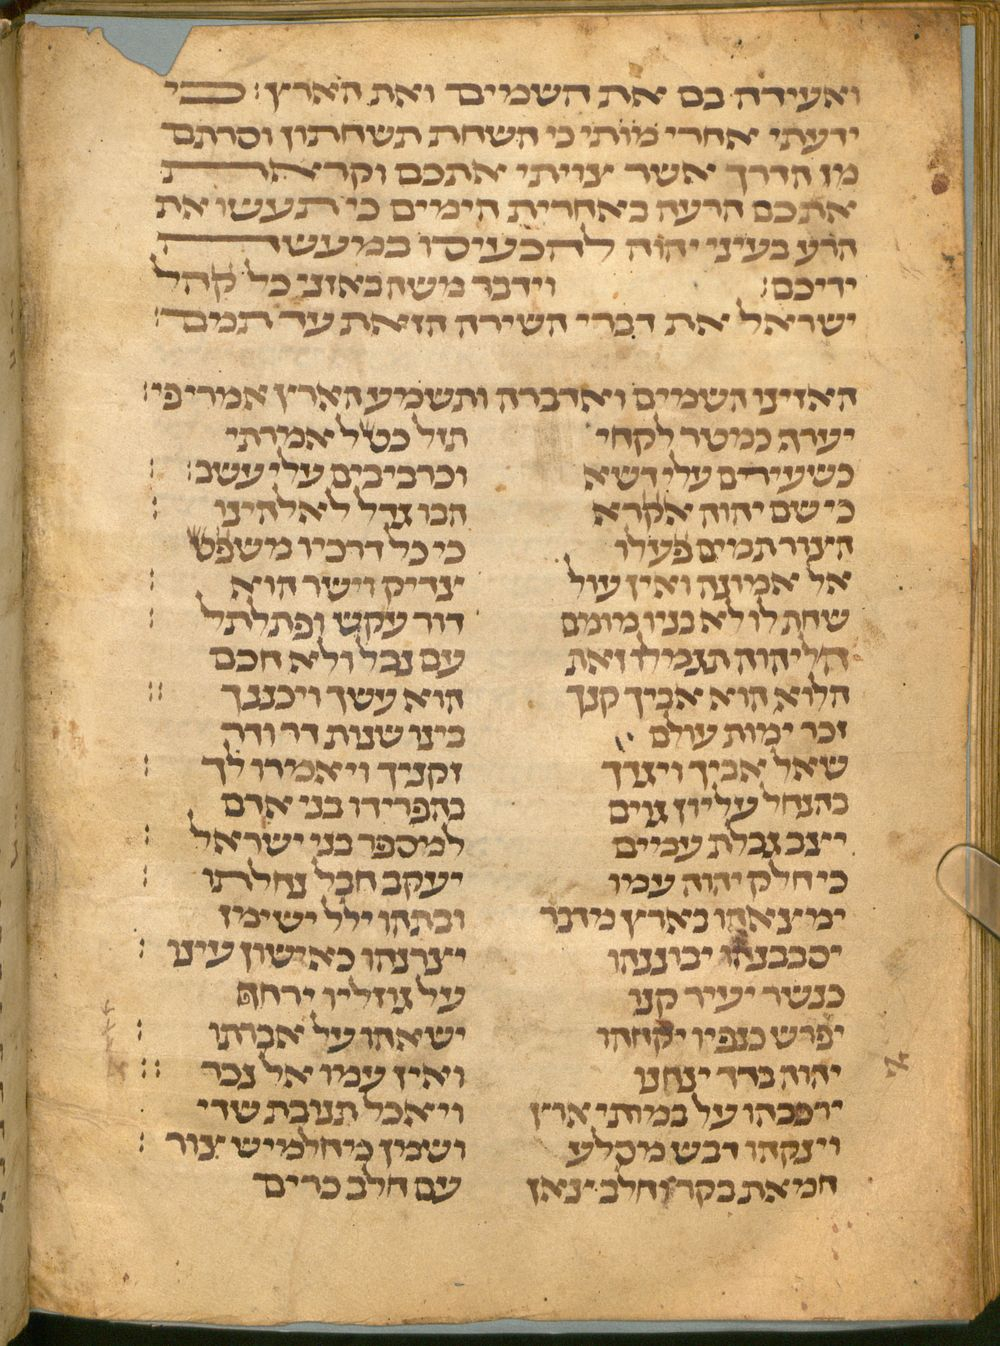 ואעידה בם את השמים ואת הארץ: כי
ידעתי אחרי מותי כי השחת תשחתון וסרתם
מן הדרך אשר צויתי אתכם וקראת
אתכם הרעה באחרית הימים כי תעשו את
הרע בעיני יהוה להכעיסו במעשה
ידיכם: וידבר משה באזני כל קהל
ישראל את דברי השירה הזאת עד תמם:
האזינו השמים ואדברה ותשמע הארץ אמרי פי:
יערף כמטר לקחי תזל כטל אמרתי
כשעירם עלי דשא וכרביבים עלי עשב:
כי שם יהוה אקרא הבו גדל לאלהינו:
הצור תמים פעלו כי כל דרכיו משפט
אל אמונה ואין עול צדיק וישר הוא:
שחת לו לא בניו מומם דור עקש ופתלתל:
הליהוה תגמלו זאת עם נבל ולא חכם
הלוא הוא אביך קנך הוא עשך ויכננך:
זכר ימות עולם בינו שנות דר ודר
שאל אביך ויגדך זקניך ויאמרו לך:
בהנחל עליון גוים בהפרידו בני אדם
יצב גבלת עמים למספר בני ישראל:
כי חלק יהוה עמו יעקב חבל נחלתו:
ימצאהו בארץ מדבר ובתהו ילל ישימן
יסבבנהו יבוננהו יצרנהו כאישון עינו:
כנשר יעיר קנו על גוזליו ירחף
יפרש כנפיו יקחהו ישאהו על אברתו:
יהוה בדד ינחנו ואין עמו אל נכר:
ירכבהו על במותי ארץ ויאכל תנובת שדי
וינקהו דבש מסלע ושמן מחלמיש צור:
חמאת בקר וחלב צאן עם חלב כרים